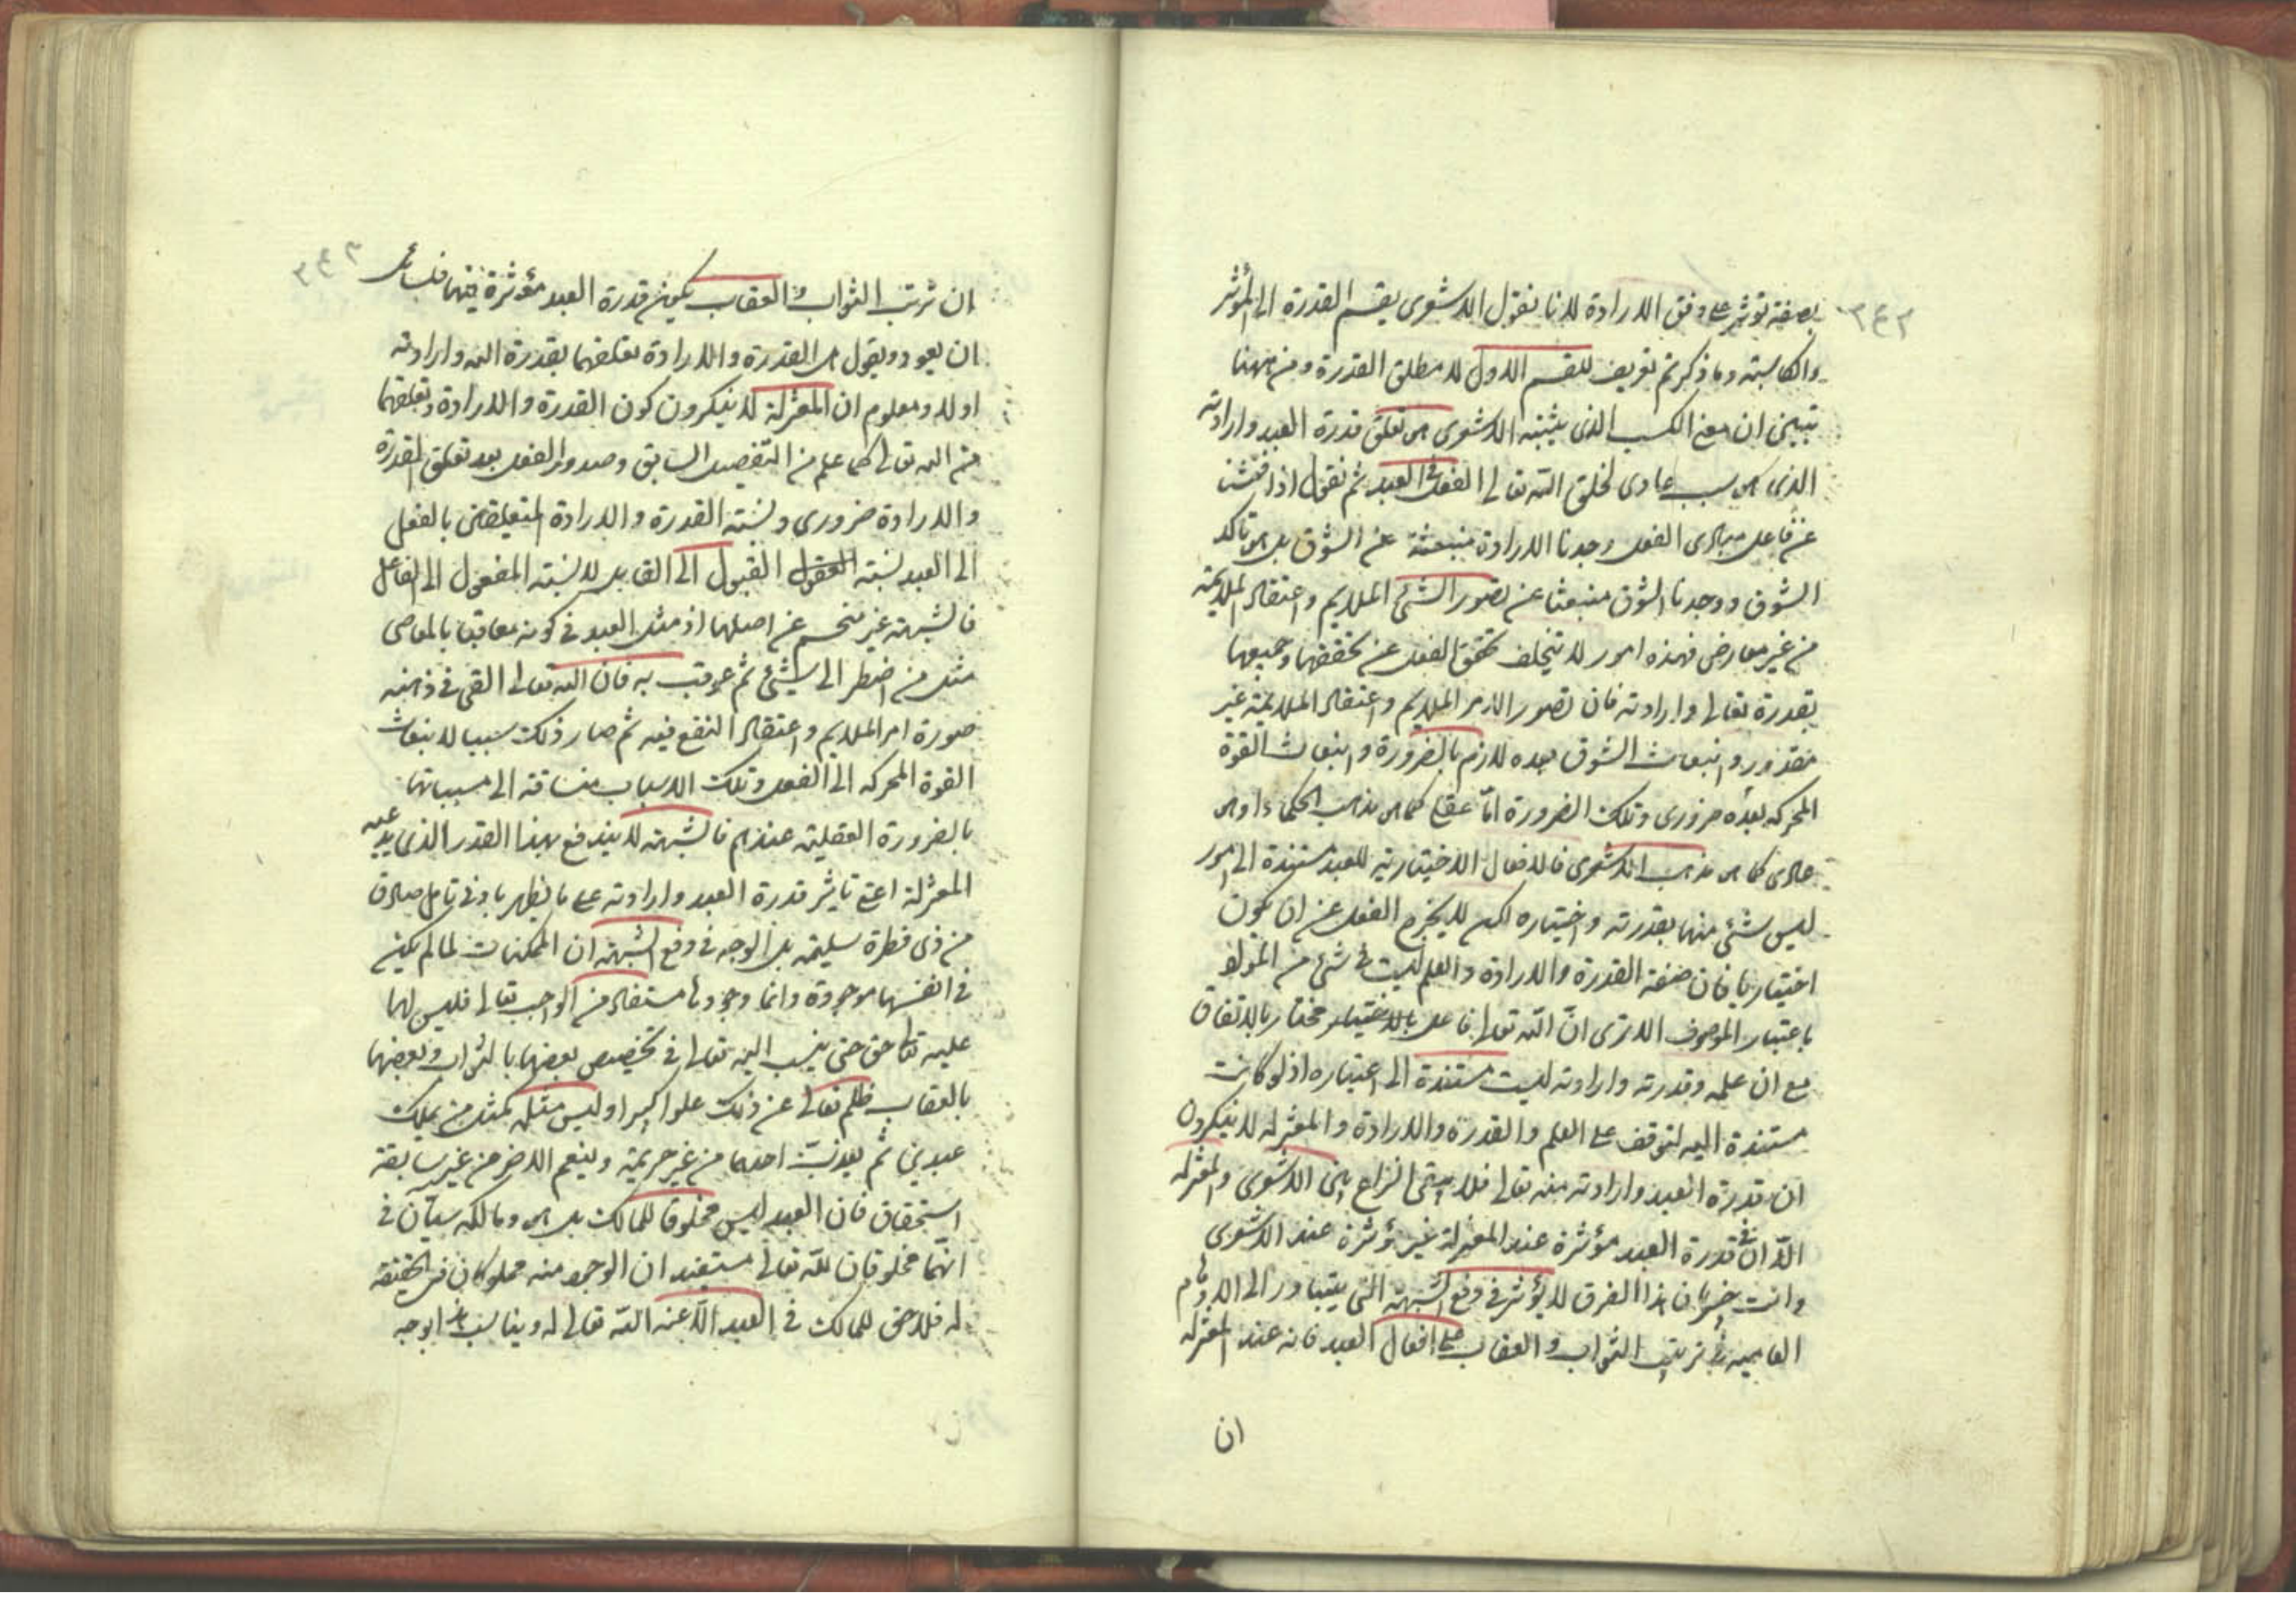 ٣٤٢
بصفة تؤثر على وفق الارادة لانا نقول الاشعرى يقسم القدرة الى المؤثر
والكاسبة وما ذكرتم تعريف للقسم الاول لا مطلق القدرة ومن ههنا
تبين ان معنى الكسب الذى يثبته الاشعرى هو تعلق قدرة العبد وارادته
الذى هو سبب عادى لخلق الله تعالى الفعل فى العبد ثم نقول اذا فتشنا
عن فاعل مبادى الفعل وجدنا الارادة منبعثة عن الشوق بل هو تأكد
الشوق ووجدنا الشوق منبعثا عن تصور الشئ الملايم واعتقاد الملايمة
من غير معارض فهذه امور لا يتخلف تحقق الفعل عن تحققها وجميعها
بقدرة تعالى وارادته فان تصور الامر الملايم واعتقاد الملايمة غير
مقدور وانبعاث الشوق بعده لازم بالضرورة وانبعاث القوة
المحركه بعده ضرورى وتلك الضرورة امّا عقلى كما هو مذهب الحكماء او هو
عادى كما هو مذهب الاشعرى فالافعال الاختيارية للعبد مستندة الى امور
ليس شئ منها بقدرته واختياره لكن لا يخرج الفعل عن ان يكون
اختياريا فان صفة القدرة والارادة والعلم ليست فى شئ من المواد
باعتبار الموصوف الا ترى انّ الله تعالى فاعل بالاختيار مختار بالاتفاق
مع ان علمه وقدرته وارادته ليست مستندة الى اختياره اذ لو كانت
مستندة اليه لتوقف على العلم والقدرة والارادة والمعتزله لا ينكرون
ان قدرة العبد وارادته منه تعالى فلا يبقى النزاع بين الاشعرى والمعتزله
الّا ان فى قدرة العبد مؤثرة عند المعتزلة غير مؤثرة عند الاشعرى
وانت خبير بان هذا الفرق لا يؤثر فى دفع الشبهة التى يتبادر الى الاوهام
العامية فى ترتب الثواب والعقاب على افعال العبد فانه عند المعتزله
ان
٣٤٣
ان ترتب الثواب والعقاب يكون قدرة العبد مؤثرة فيهما فلسائل
ان يعود ويقول هل القدرة والارادة تعلقهما بقدرة الله وارادته
اولا ومعلوم ان المعتزلة لا ينكرون كون القدرة والارادة وتعلقهما
من الله تعالى كما علم من التفصيل السابق وصدور الفعل بعد تعلق القدرة
والارادة ضرورى ونسبة القدرة والارادة المتعلقين بالفعل
الى العبد نسبة القبول الى القابل لا نسبة المفعول الى الفاعل
فالشبهة غير منحسم عن اصلها اذ مثل العبد فى كونه معاقبا بالمعاصى
مثل من اضطر الى شئ ثم عوقب به فان الله تعالى القى فى ذهنه
صورة امر الملايم واعتقاد النفع فيه ثم صار ذلك سببا لانبعاث
القوة المحركه الى الفعل وتلك الاسباب منساقة الى مسبباتها
بالضرورة العقلية عندهم فالشبهة لا يندفع بهذا القدر الذى يدعيه
المعتزلة اعنى تاثير قدرة العبد وارادته على ما يظهر بادنى تامل صادق
من ذى فطرة سليمة بل الوجه فى دفع الشبهة ان الممكنات لما لم يكن
فى انفسها موجودة وانما وجودها مستفاد من الواجب تعالى فليس لها
عليه تعالى حق حتى ينسب اليه تعالى فى تخصيص بعضها بالثواب وبعضها
بالعقاب ظلم تعالى عن ذلك علوا كبيرا وليس مثله كمثل من يملك
عبدين ثم يعذب احدهما من غير جريمة وينعم الاخر من غير سابقة
استحقاق فان العبد ليس مخلوقا للمالك بل هو ومالكه سيّان فى
انّهما مخلوقان للّه تعالى مستفيدان الوجود منه مملوكان فى الحقيقة
له فلا حق للمالك فى العبد الّا عنه الله تعالى له ويناسب هذا بوجه